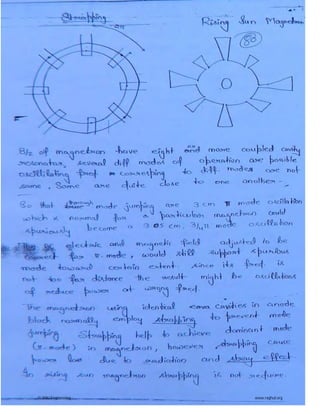 Strapping
Rising Sun Magnetron
80
B/z of magnetron have eight and more coupled cavity
resonator, several diff modes of operation are possible
oscillating freq corresponding to diff. modes are not
same. Some are quite close to one another -
So that through mode jumping are 3 cm π mode oscillation
which is normal for particular magnetron could
spuriously become a 3.05 cm, 3/4 π mode oscillation
The DC electric and magnetic field adjusted to be
correct for π-mode, would still support spurious
mode toward certain extent, since its freq is
not too far distance the result might be oscillations
of reduce power at wrong freq.
The magnetron using identical cavities in anode
block normally employ strapping to prevent mode
jumping Strapping help to achieve dominant mode
(π-mode) in magnetron, however, strapping cause
power loss due to radiation and stray effect
In rising sun magnetron strapping is not require.
www.rejphul.org